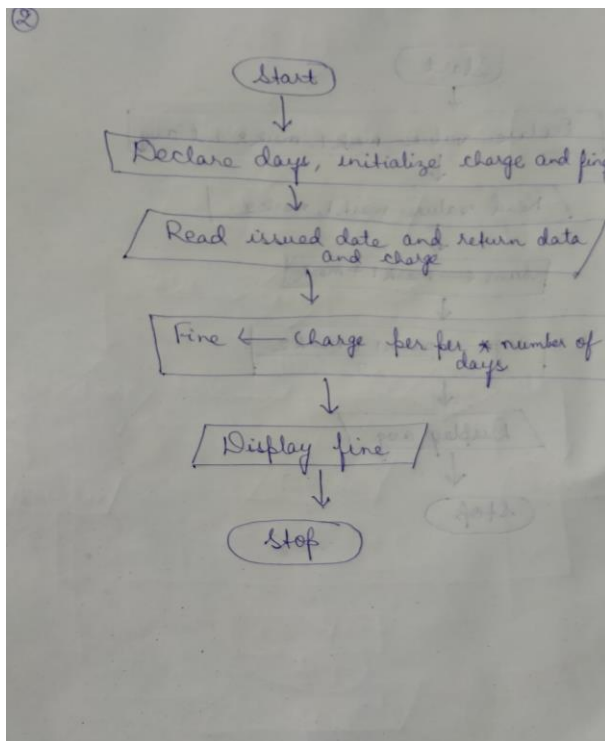 2
Start
Declare days, initialize charge and fine
Read issued date and return data
and charge
Fine ← Charge per per * number of
days
Display fine
Stop